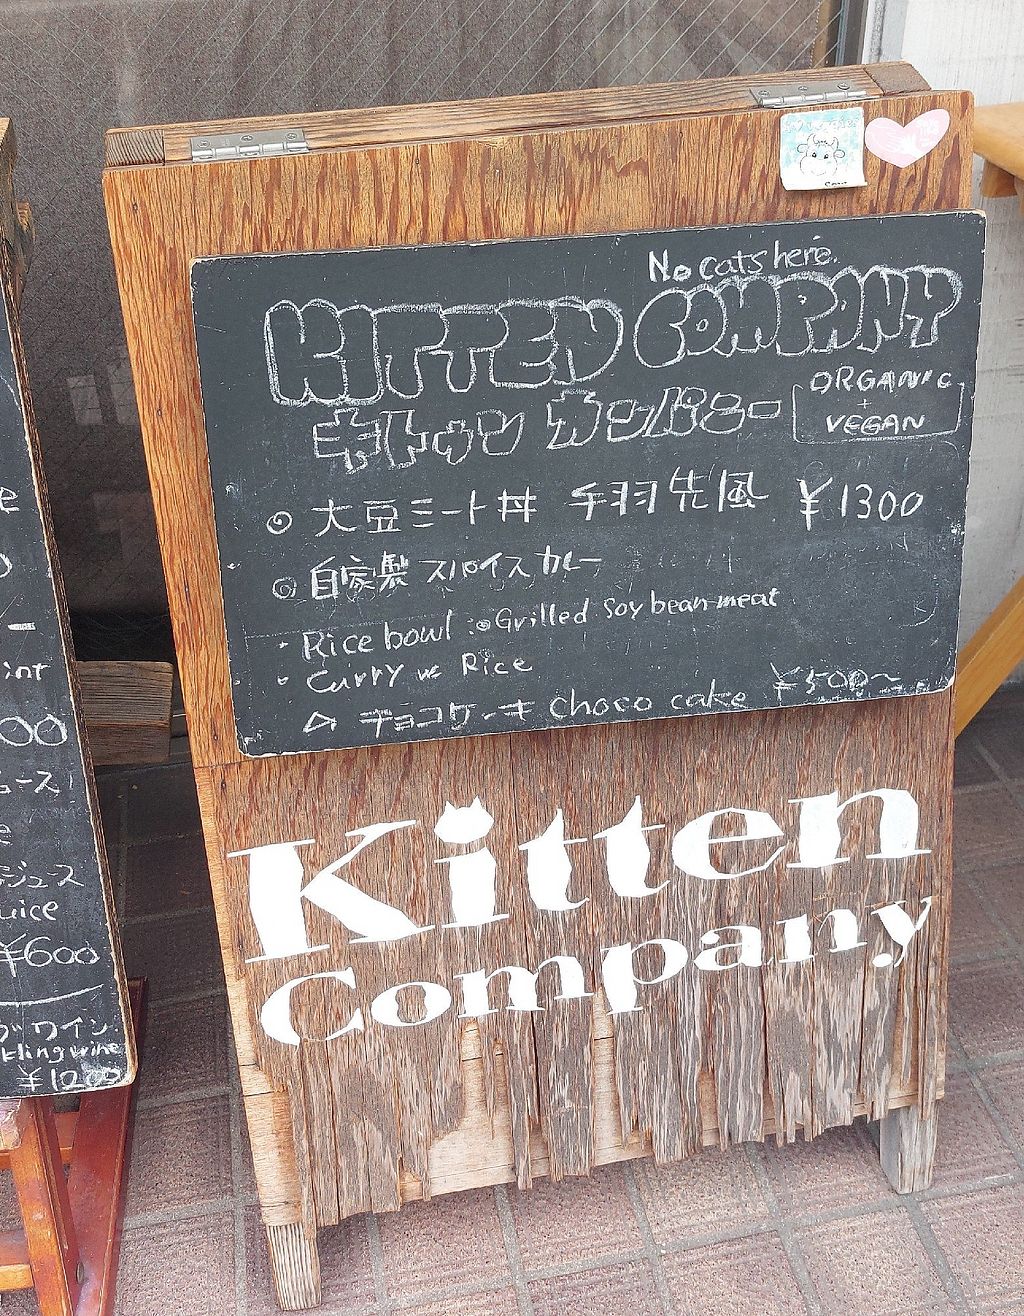 No cats here.
KITTEN COMPANY
キトゥン カンパニー
ORGANIC
+
VEGAN
◎ 大豆ミート丼 手羽先風 ¥1300
◎ 自家製 スパイスカレー
・Rice bowl : Grilled soy bean meat
・Curry w Rice
△ チョコケーキ choco cake ¥500〜
Kitten
Company
uice
¥600
ワイン
kling wine
¥1200